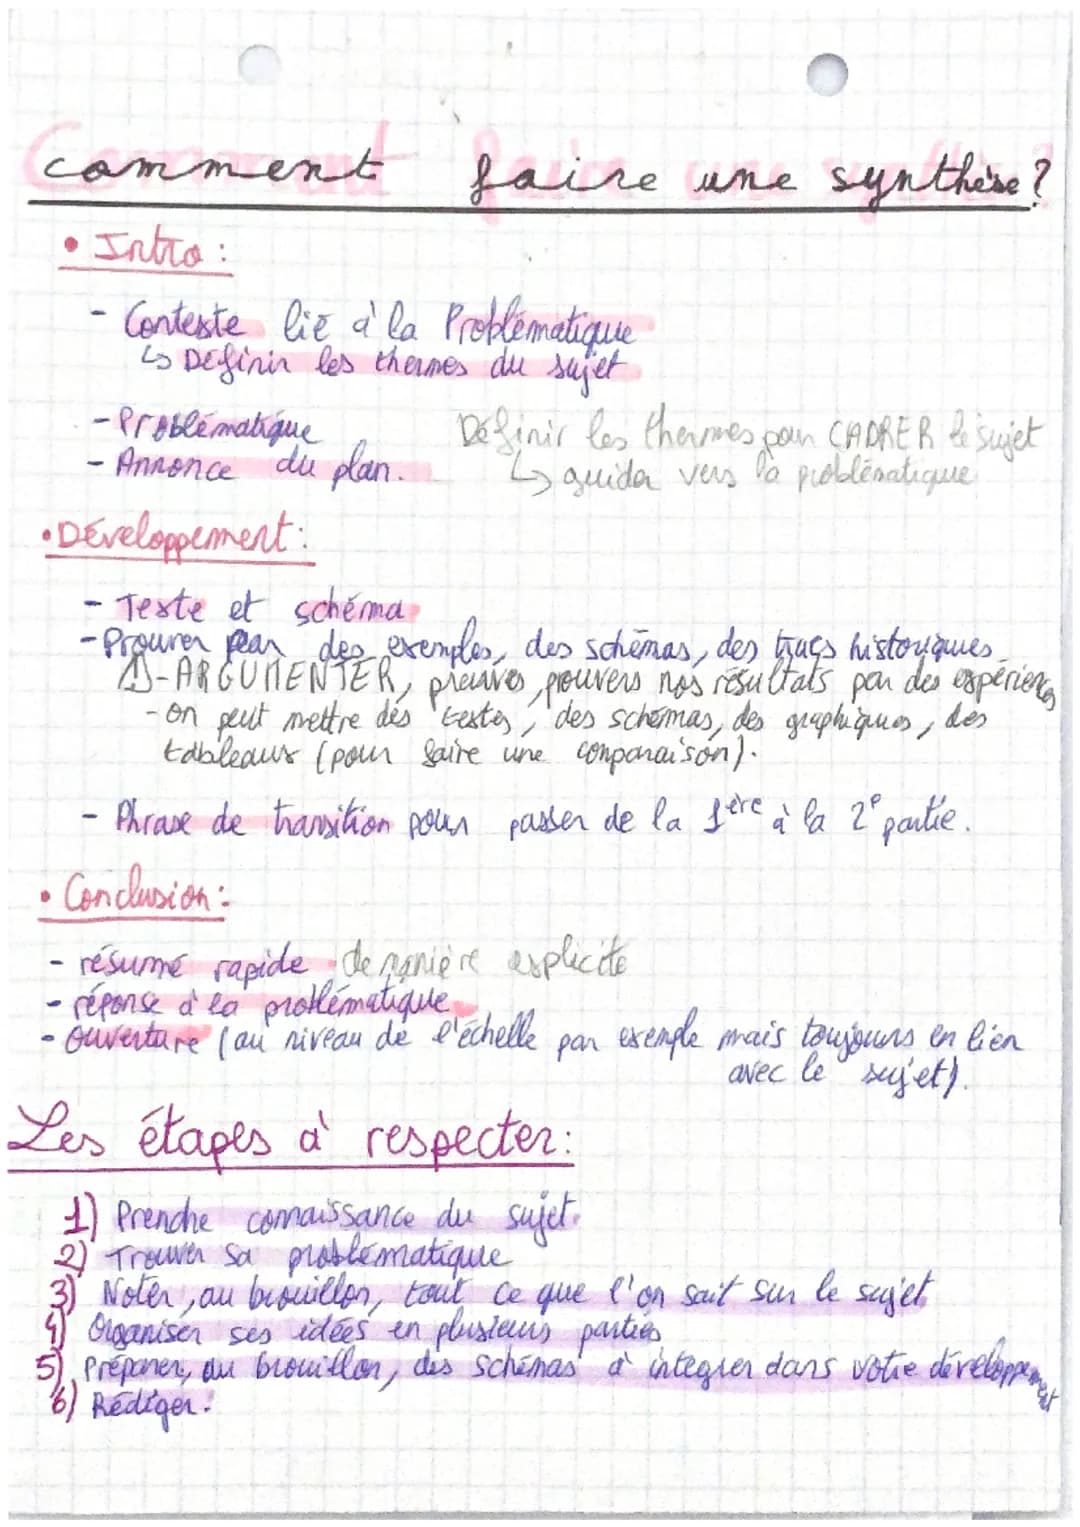 Comment faire une synthèse ?
• Intro :
- Contexte lié à la Problématique
↳ Définir les thermes du sujet
- Problématique
Définir les thermes pour CADRER le sujet
- Annonce du plan.
↳ guider vers la problématique
• Développement :
- Texte et schéma
- Prouver par des exemples, des schémas, des trucs historiques
⚠ - ARGUMENTER, preuves, prouvers nos résultats par des expériences
- on peut mettre des textes, des schémas, des graphiques, des
tableaux (pour faire une comparaison).
- Phrase de transition pour passer de la 1ère à la 2e partie.
• Conclusion :
- résumé rapide de manière explicite
- réponse à la problématique
- Ouverture (au niveau de l'échelle par exemple mais toujours en lien
avec le sujet).
Les étapes à respecter :
1) Prendre connaissance du sujet.
2) Trouver sa problématique
3) Noter, au brouillon, tout ce que l'on sait sur le sujet
4) Organiser ses idées en plusieurs parties
5) Préparer, au brouillon, des schémas à integrer dans votre développement
6) Rédiger.